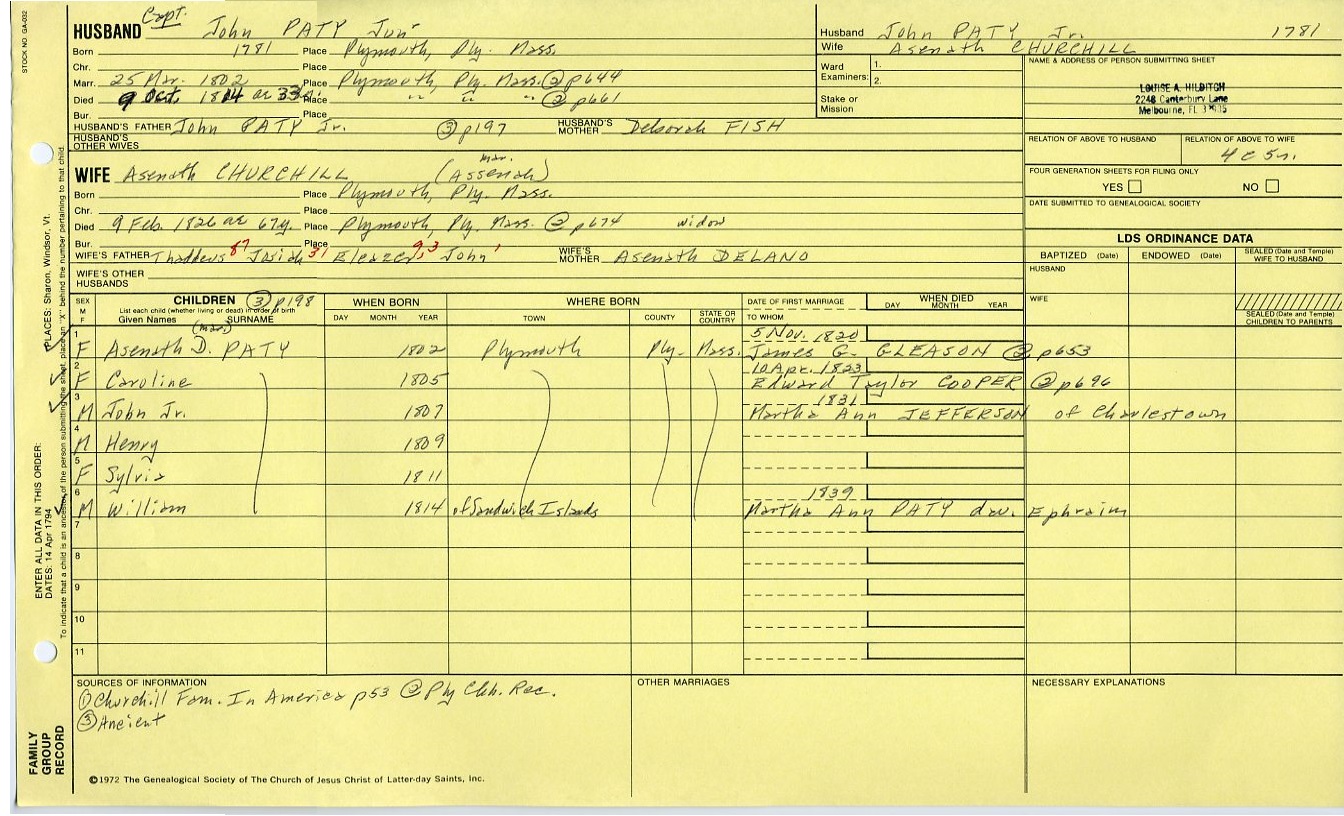 STOCK NO. GA-032
HUSBAND Capt. John PATY Jun
Born 1781 Place Plymouth, Ply. Mass.
Chr. Place
Marr. 25 Mar. 1802 Place Plymouth, Ply. Mass. ② p644
Died 9 Oct. 1814 ae 33 Place " " " ② p661
Bur. Place
HUSBAND'S FATHER John PATY Jr. ③ p197 HUSBAND'S MOTHER Deborah FISH
HUSBAND'S OTHER WIVES
Husband John PATY Jr. 1781
Wife Asenath CHURCHILL
Ward Examiners: 1.
2.
Stake or Mission
NAME & ADDRESS OF PERSON SUBMITTING SHEET
LOUISE A. HILDITCH
2248 Canterbury Lane
Melbourne, FL
RELATION OF ABOVE TO HUSBAND RELATION OF ABOVE TO WIFE
4c5n.
FOUR GENERATION SHEETS FOR FILING ONLY
YES NO
DATE SUBMITTED TO GENEALOGICAL SOCIETY
WIFE Asenath CHURCHILL (mar. Assenah)
Born Place Plymouth, Ply. Mass.
Chr. Place
Died 9 Feb. 1826 ae 67y. Place Plymouth, Ply. Mass. ② p674 widow
Bur. Place
WIFE'S FATHER Thaddeus 87 Josiah 31 Eleazer 9,3 John 1 WIFE'S MOTHER Asenath DELANO
WIFE'S OTHER HUSBANDS
LDS ORDINANCE DATA
BAPTIZED (Date) ENDOWED (Date) SEALED (Date and Temple) WIFE TO HUSBAND
HUSBAND
WIFE
SEALED (Date and Temple) CHILDREN TO PARENTS
SEX M F CHILDREN ③ p198 WHEN BORN WHERE BORN DATE OF FIRST MARRIAGE WHEN DIED
List each child (whether living or dead) in order of birth
Given Names SURNAME DAY MONTH YEAR TOWN COUNTY STATE OR COUNTRY TO WHOM DAY MONTH YEAR
(mar.) 5 Nov. 1820
1 F Asenath D. PATY 1802 Plymouth Ply. Mass. James G. GLEASON ② p653
10 Apr. 1823
2 F Caroline 1805 Edward Taylor COOPER ② p696
1831
3 M John Jr. 1807 Martha Ann JEFFERSON of Charlestown
4 M Henry 1809
5 F Sylvia 1811
1839
6 M William 1814 of Sandwich Islands Martha Ann PATY dau. Ephraim
7
8
9
10
11
SOURCES OF INFORMATION
① Churchill Fam. In America p53 ② Ply Chh. Rec.
③ Ancient
OTHER MARRIAGES
NECESSARY EXPLANATIONS
©1972 The Genealogical Society of The Church of Jesus Christ of Latter-day Saints, Inc.
FAMILY GROUP RECORD
ENTER ALL DATA IN THIS ORDER:
DATES: 14 Apr 1794
PLACES: Sharon, Windsor, Vt.
To indicate that a child is an ancestor of the person submitting the sheet, place an "X" behind the number pertaining to that child.